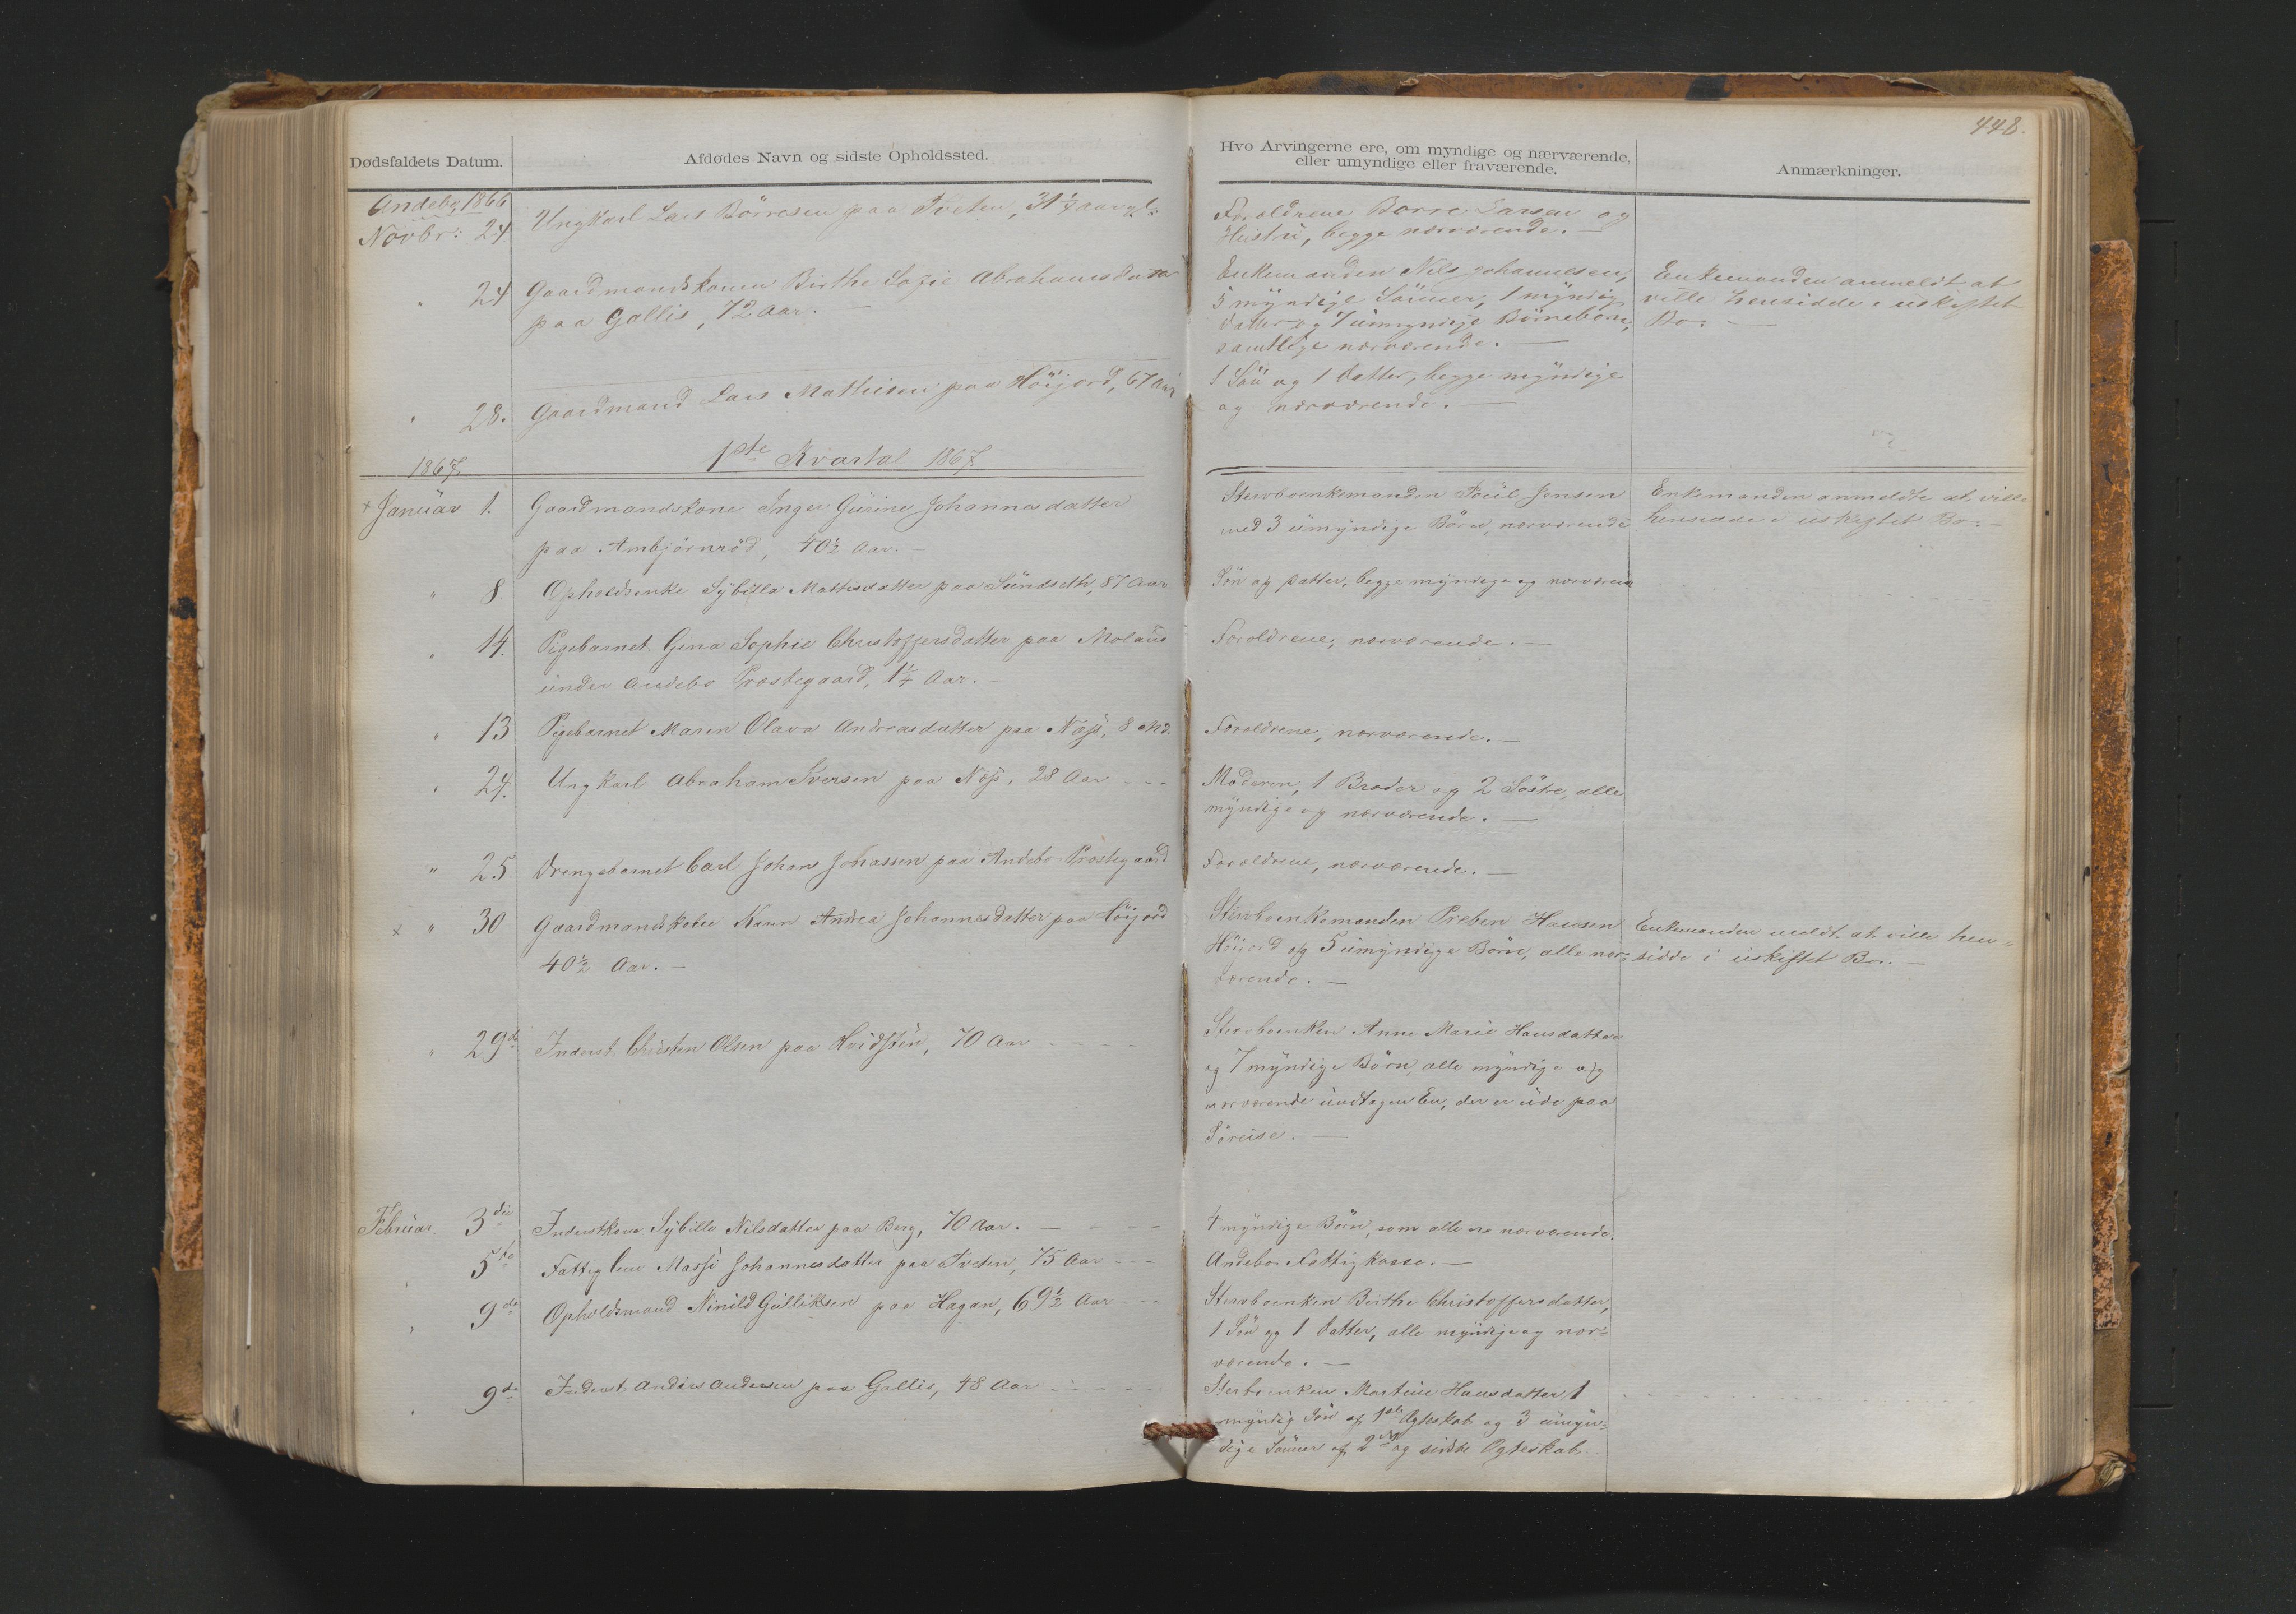 448.
Dødsfaldets Datum.
Afdødes Navn og sidste Opholdssted.
Hvo Arvingerne ere, om myndige og nærværende,
eller umyndige eller fraværende.
Anmærkninger.
Andebo, 1866
Novbr: 24
Ungkarl Lars Börresen paa Tveten, 31 1/4 aar gl:
Forældrene Børre Larsen og
Hustru, begge nærværende. —
" 24
Gaardmandskonen Birthe Sofie Abrahamsdatter
paa Gallis, 72 Aar. —
Enkemanden Nils Johannesen,
5 myndige Sönner, 1 myndig
Datter og 7 umyndige Börnebörn,
samtlige nærværende. —
Enkemanden anmeldt at
ville hensidde i uskiftet
Bo. —
" 28.
Gaardmand Lars Mathisen paa Höijord, 67 Aar
1 Sön og 1 Datter, begge myndige
og nærværende. —
1867.
1ste Kvartal 1867
+ Januar 1.
Gaardmandskone Inger Gurine Johannesdatter
paa Ambjörnröd, 40½ Aar. —
Stervboenkemanden Poul Jensen
med 3 umyndige Börn, nærværende
Enkemanden anmeldte at ville
hensidde i uskiftet Bo. —
" 8
Opholdsenke Sybilla Mathisdatter paa Sundseth, 87 Aar
Sön og Datter, begge myndige og nærværende
" 14.
Pigebarnet Gina Sophie Christoffersdatter paa Moland
under Andebo Præstegaard, 1¼ Aar. —
Forældrene, nærværende. —
" 13
Pigebarnet Maren Olava Andreasdatter paa Næss, 8 Md.
Forældrene, nærværende. —
" 24.
Ungkarl Abraham Iversen paa Næss, 28 Aar - - -
Moderen, 1 Broder og 2 Söstre, alle
myndige og nærværende. —
" 25
Drengebarnet Carl Johan Johassen paa Andebo Præstegaard
Forældrene, nærværende. —
x " 30
Gaardmandskone Karen Andrea Johannesdatter paa Höijord
40½ Aar. —
Stervboenkemanden Preben Hansen
Höijord og 5 umyndige Börn, alle nær-
værende. —
Enkemanden meldt at ville hen-
sidde i uskiftet Bo. —
" 29de
Inderst Christen Olsen paa Hvidsten, 70 Aar - - -
Stervboenken Anne Marie Hansdatter
og 7 myndige Börn, alle myndige og
nærværende undtagen En, der er ude paa
Söreise. —
Februar 3die
Inderstkone Sybille Nilsdatter paa Berg, 70 Aar. — - - -
4 myndige Börn, som alle ere nærværende.
" 5te
Fattiglem Massi Johannesdatter paa Tveten, 75 Aar - - -
Andebo Fattigkasse. —
" 9de
Opholdsmand Ninild Gulliksen paa Hagan, 69½ Aar - -
Stervboenken Birthe Christoffersdatter,
1 Sön og 1 Datter, alle myndige og nær-
værende. —
" 9de
Inderst Anders Andersen paa Gallis, 48 Aar - - - -
Sterboenken Martine Hansdatter 1
myndig Sön af 1ste Ægteskab og 3 umyn-
dige Sönner af 2det og sidste Ægteskab.